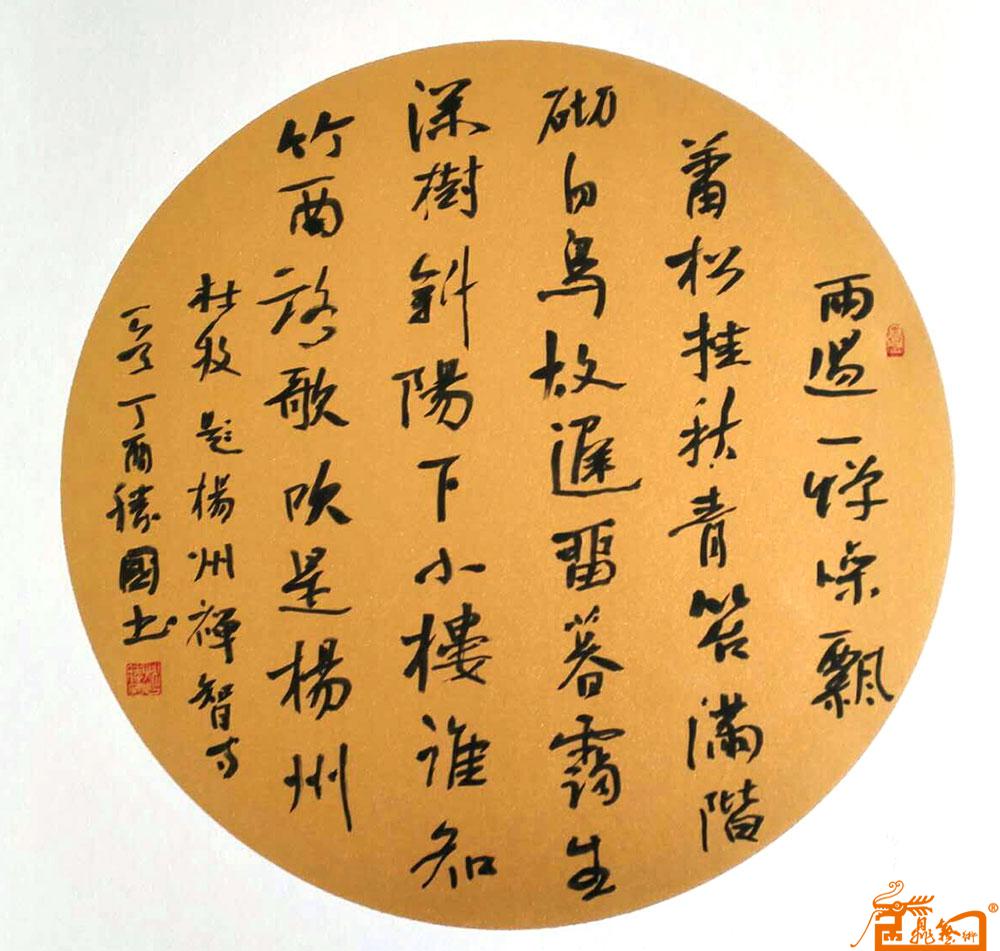 雨過一蟬噪飄
蕭松桂秋青苔滿階
砌白鳥故遲留暮靄生
深樹斜陽下小樓誰知
竹西路歌吹是楊州
杜牧題楊州禪智寺
丁酉勝國書